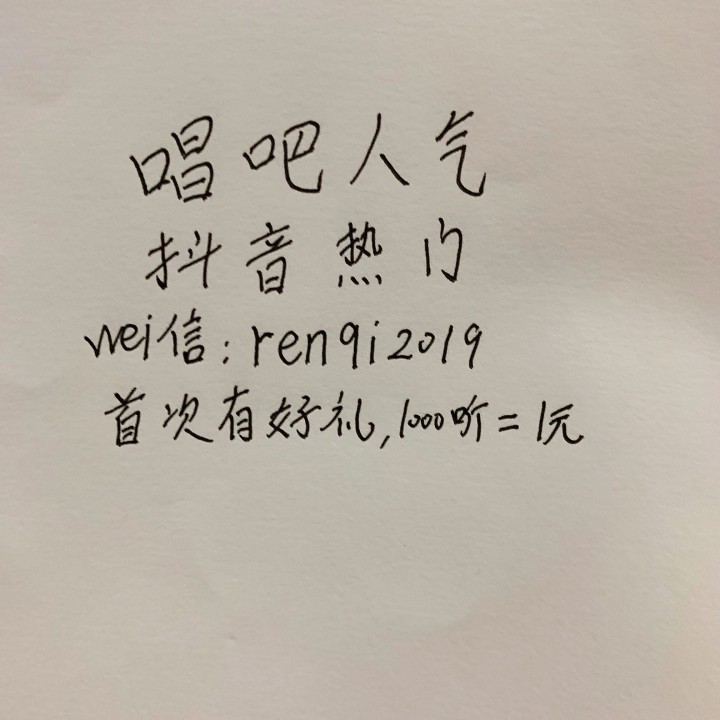 唱吧人气
抖音热门
wei信:renqi2019
首次有好礼,1000听=1元